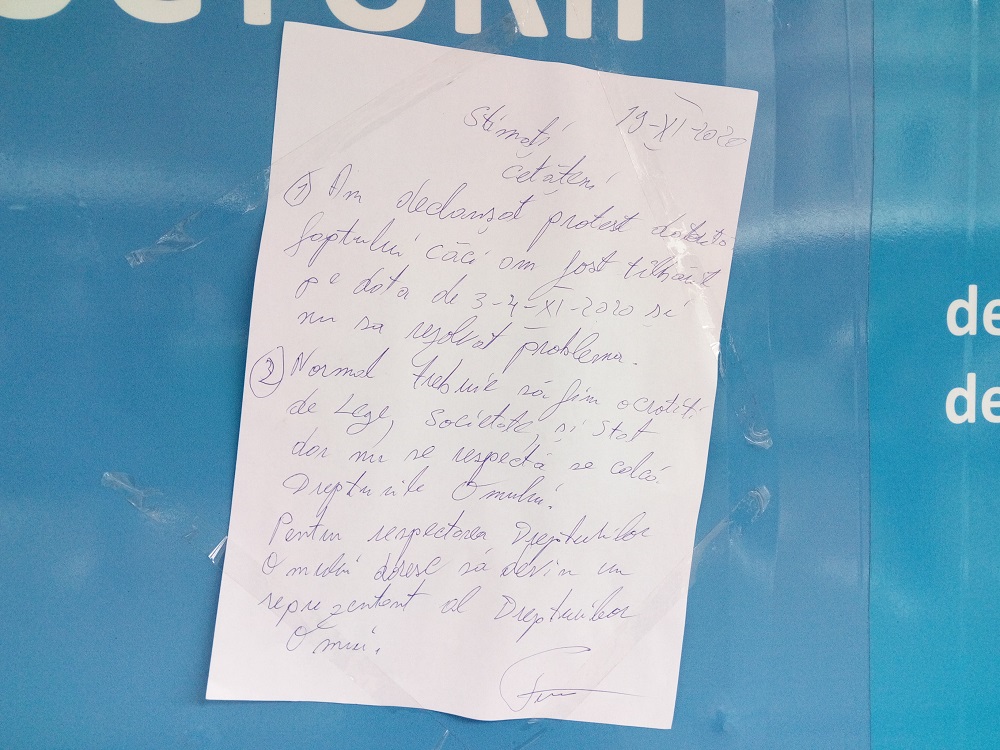 19-XI-2020
Stimați
cetățeni
① Am declanșat protest datorită
faptului căci am fost tîlhărit
pe data de 3-4-XI-2020 și
nu sa rezolvat problema.
② Normal trebuie să fim ocrotiți
de Lege, Societate, și Stat
dar nu se respectă se calcă
Drepturile Omului.
Pentru respectarea Drepturilor
Omului doresc să devin un
reprezentant al Drepturilor
Omui.
de
de